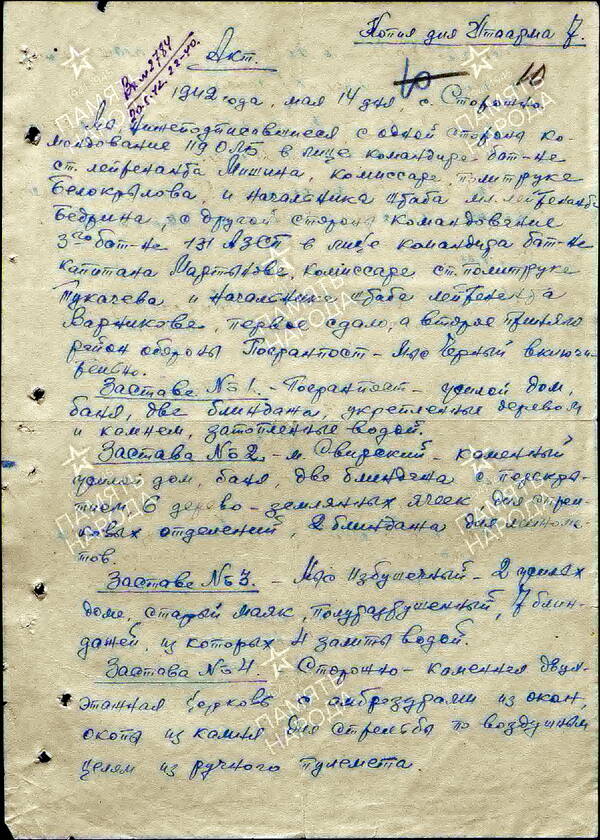 Копия для Штаарма 7.
Вх. № 2784
20.5.42. 22-40.
Акт.
10
1942 года, мая 14 дня, с. Сторожно.
Мы, нижеподписавшиеся с одной стороны ко-
мандование ОЛБ в лице командира бат-не
ст. лейтенанта Мишина, комиссара политрука
Белокрылова, и начальника штаба мл. лейтенанта
Бедрина, с другой стороны командование
3го бат-не 131 АЗСП в лице командира бат-не
капитана Мартынова, комиссара ст. политрука
Тукачева и начальника штаба лейтенанта
Варникова, первое сдало, а второе приняло
район обороны Погранпост - Мыс Чёрный включи-
тельно.
Застава № 1. - Погранпост - жилой дом,
баня, две блиндажа, укрепленные деревом
и камнем, затопленные водой.
Застава № 2 - м. Свирский - каменный
жилой дом, баня, две блиндажа с перекры-
тием, 6 дерево-землянных ячеек для стрел-
ковых отделений, 2 блиндажа для миномё-
тов.
Застава № 3. - Мыс Избушечный - 2 жилых
дома, старый маяк, полуразрушенный, 7 блин-
дажей, из которых 4 залиты водой.
Застава № 4 - Сторожно - каменная двух-
этажная церковь с амбразурами из окон,
окопы из камня для стрельбы по воздушным
целям из ручного пулемета.
ПАМЯТЬ НАРОДА
ПАМЯТЬ НАРОДА
ПАМЯТЬ НАРОДА
ПАМЯТЬ НАРОДА
ПАМЯТЬ НАРОДА
ПАМЯТЬ НАРОДА